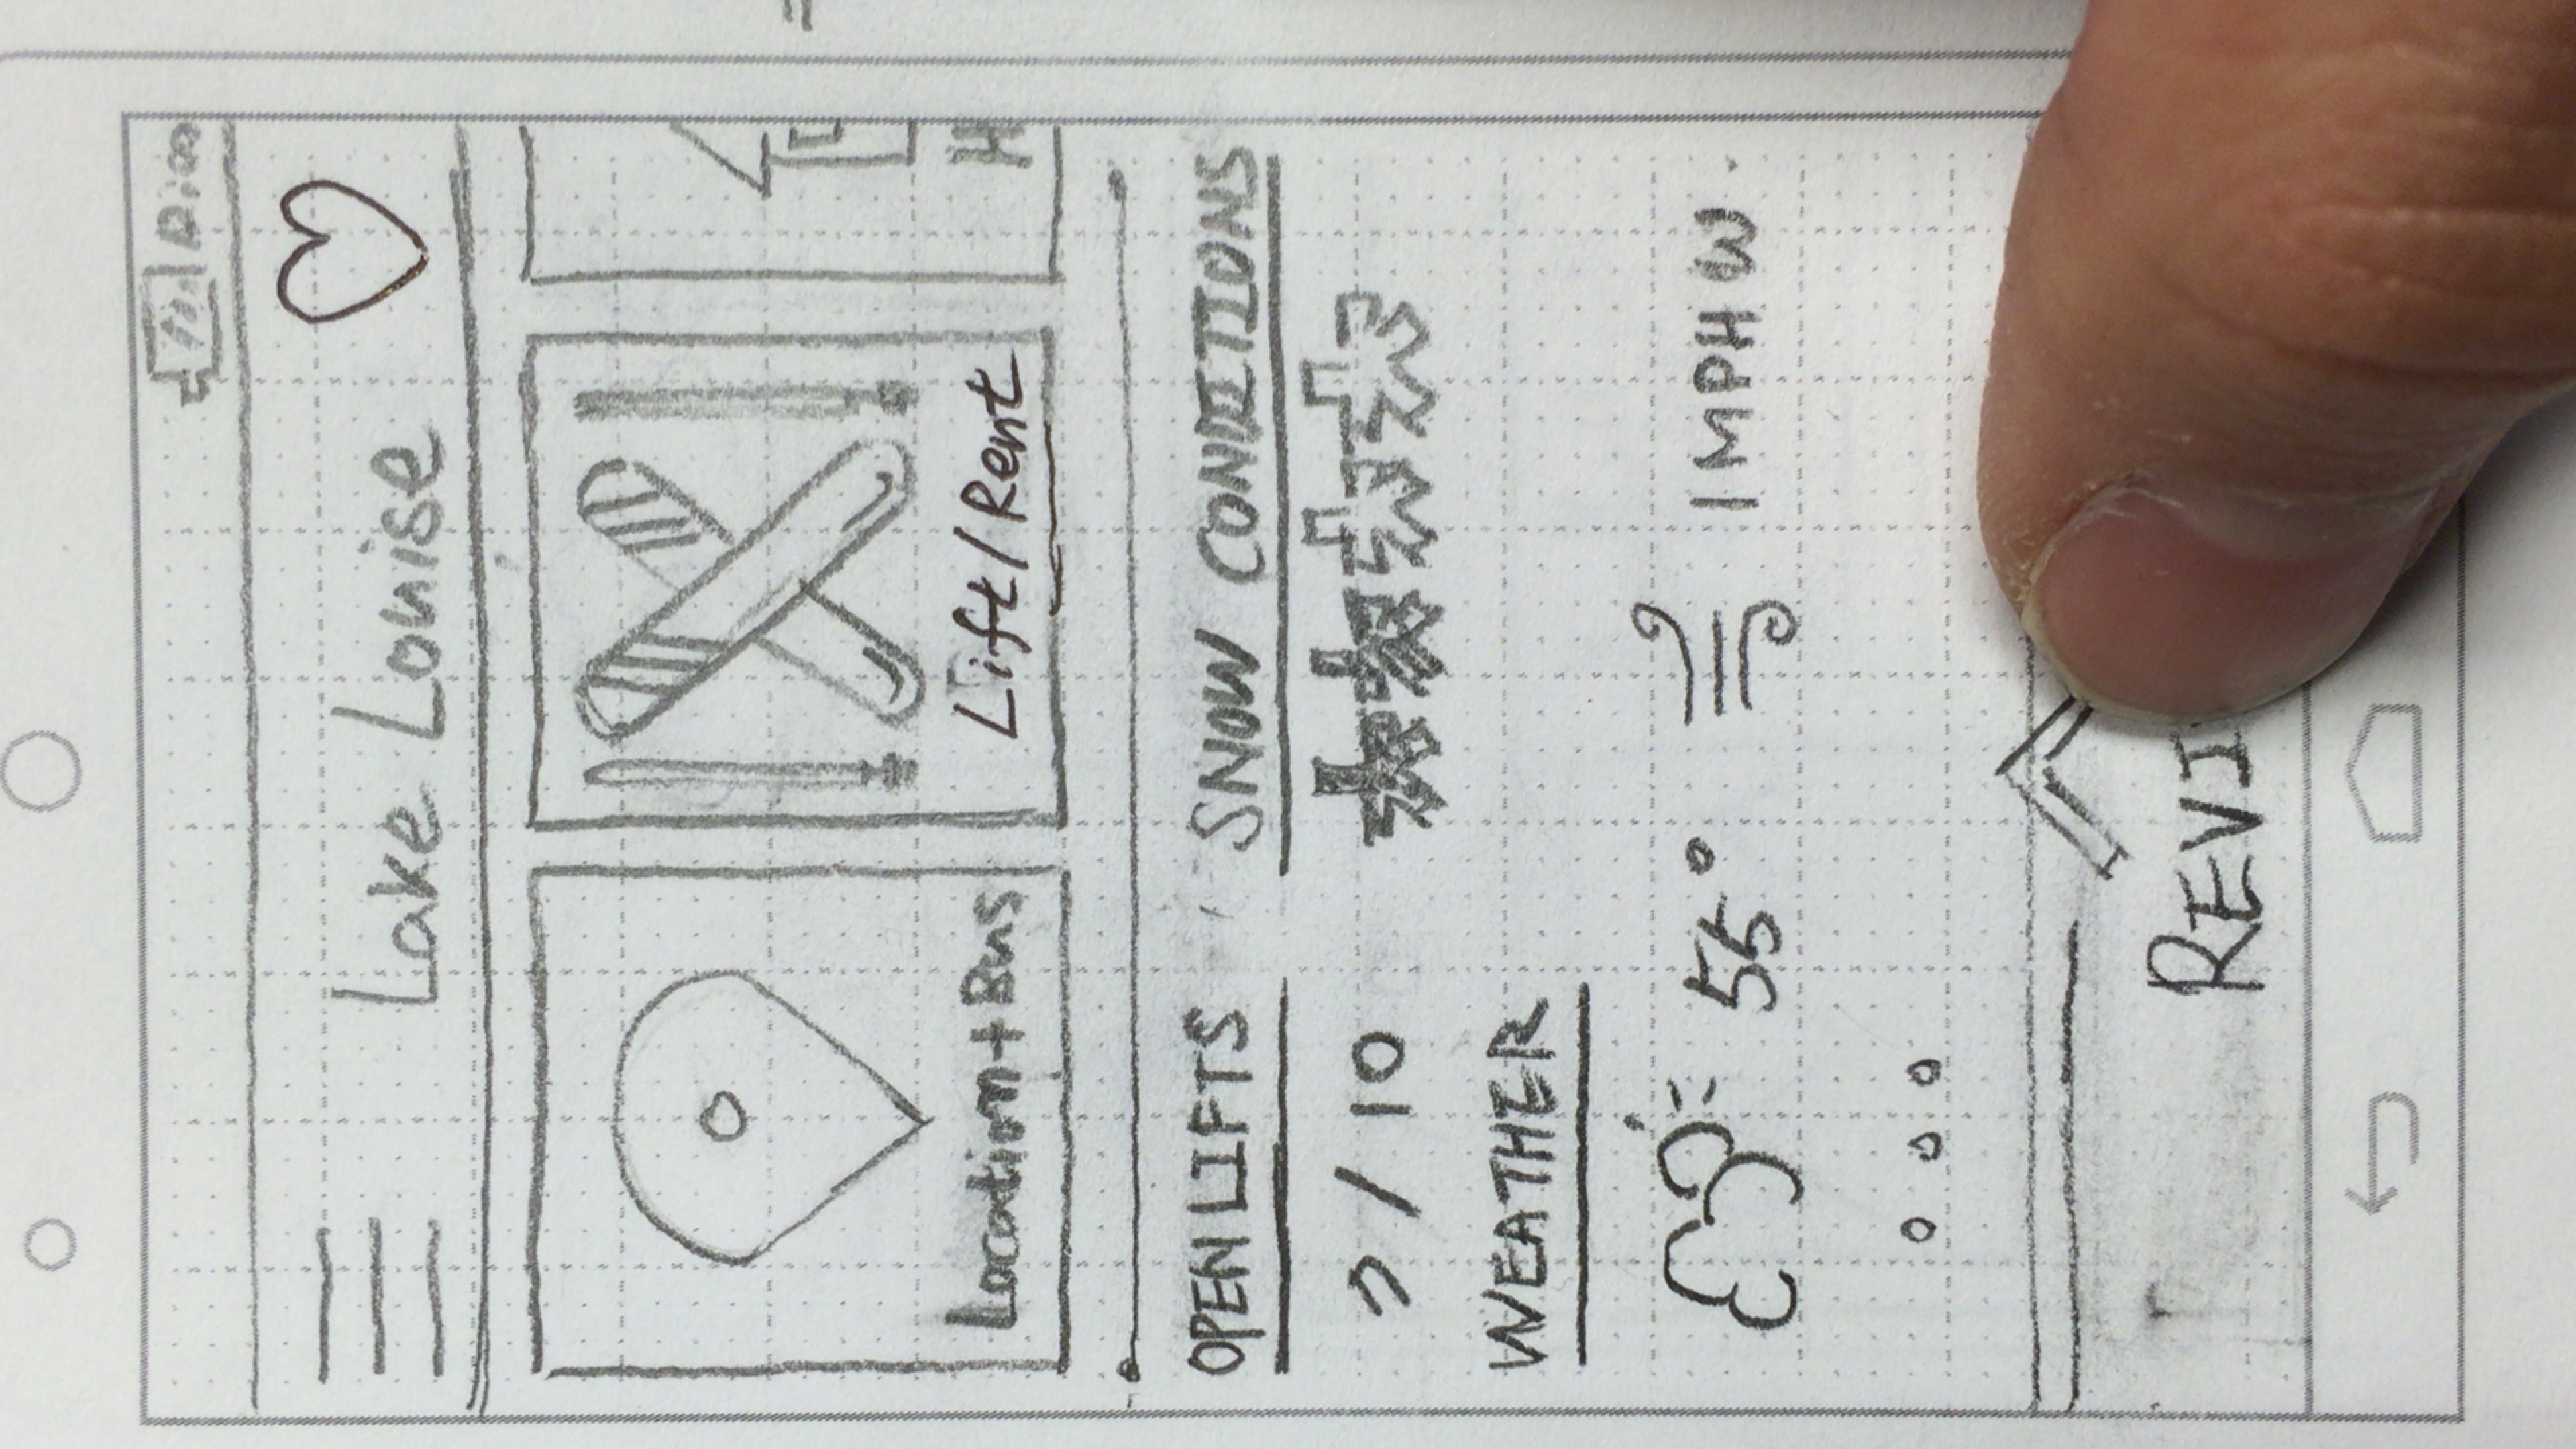 Lake Louise
Location+Bus
Lift/Rent
H
OPEN LIFTS
SNOW CONDITIONS
/ 10
WEATHER
55°
1 MPH W
REVI